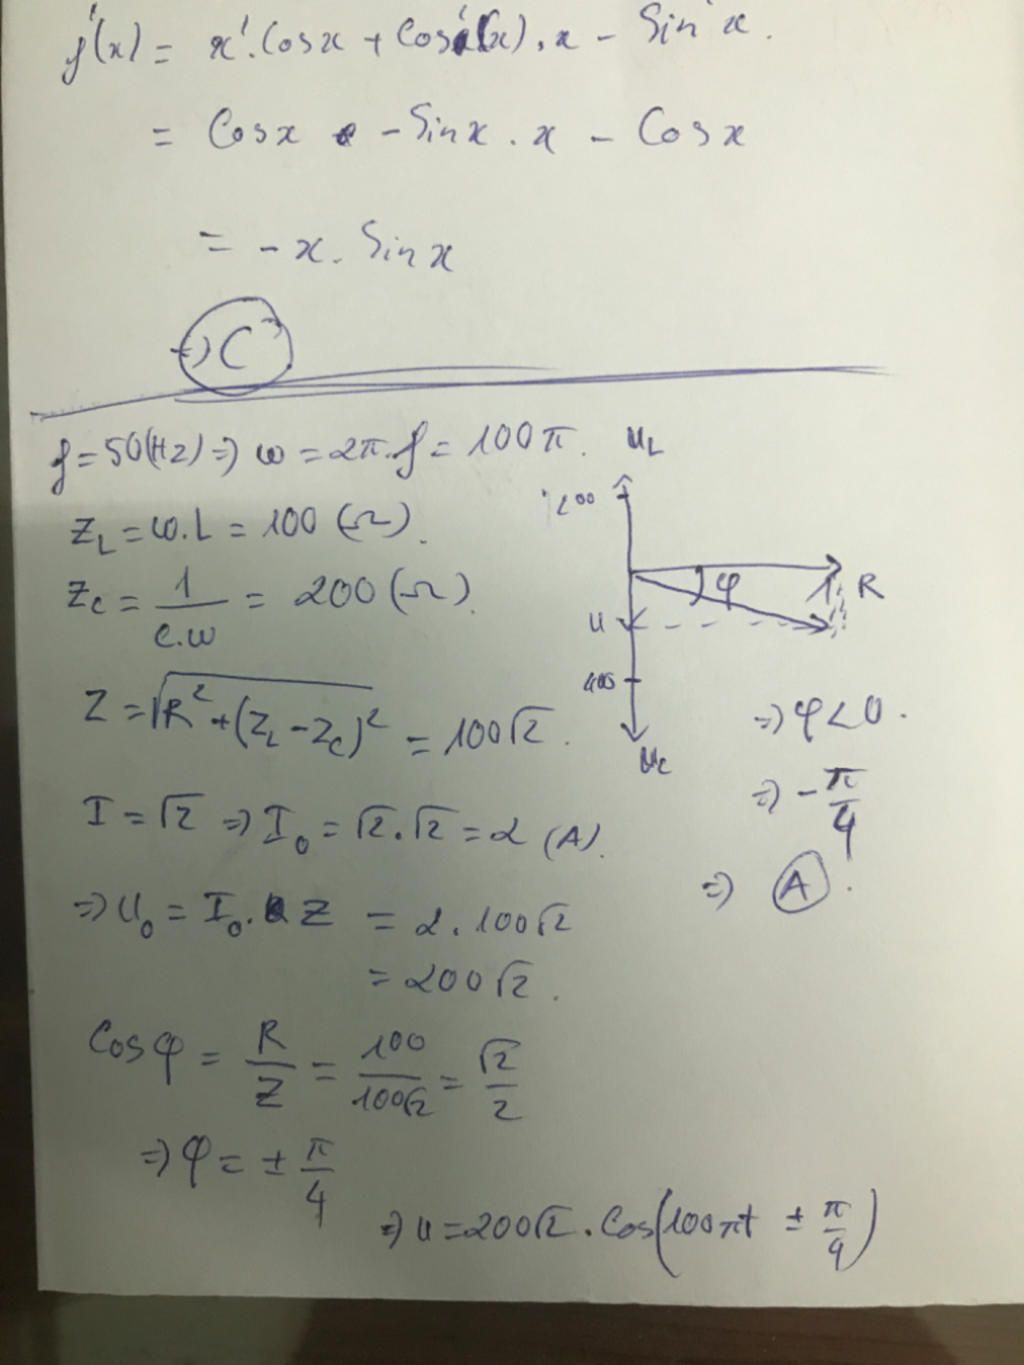 f'(x) = x'.Cosx + Cos'(x).x - Sin'x.
= Cosx - Sinx.x - Cosx
= -x.Sinx
=> C
f=50(Hz) => ω = 2π.f = 100π.
Z_L = ω.L = 100 (Ω).
Z_C = 1/(C.ω) = 200 (Ω).
Z = √(R² + (Z_L - Z_C)²) = 100√2.
I = √2 => I₀ = √2.√2 = 2 (A).
=> U₀ = I₀.Z = 2.100√2
= 200√2.
Cosφ = R/Z = 100/(100√2) = √2/2
=> φ = ± π/4
=> u = 200√2.Cos(100πt ± π/4)
U_L
200
φ
R
U
400
U_C
=> φ < 0.
=> -π/4
=> A.